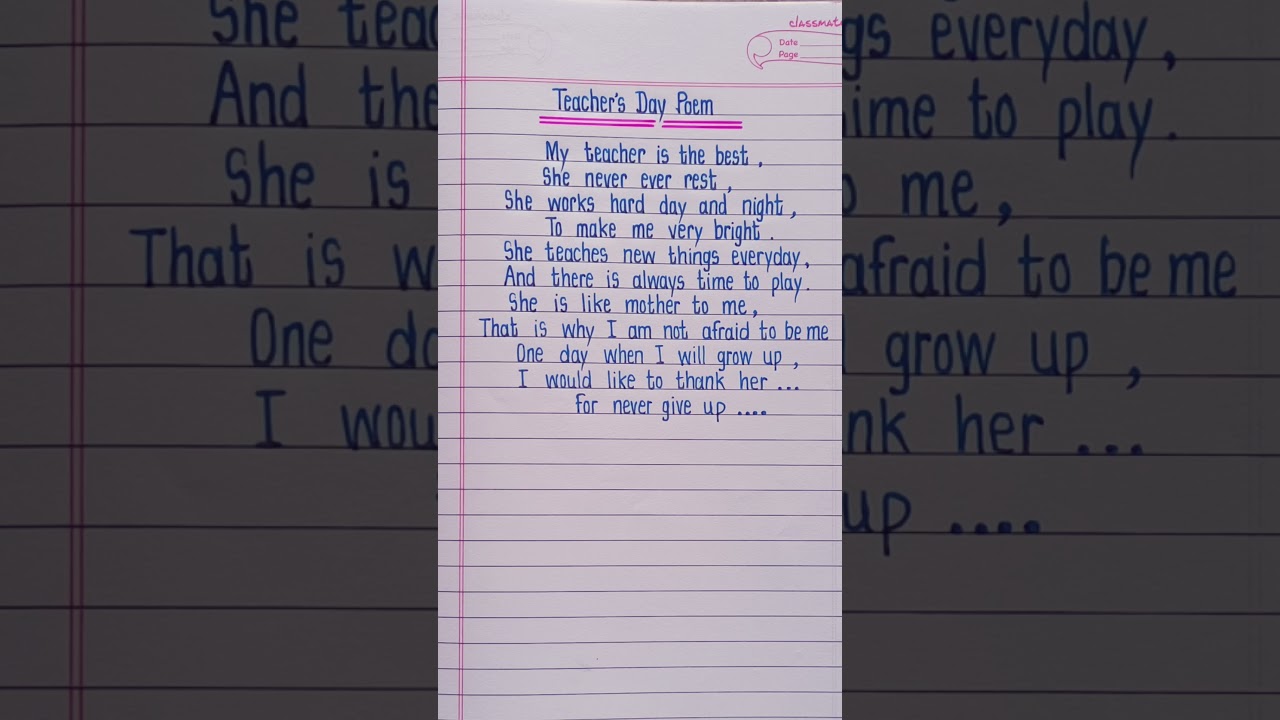 classmat
Date
Page
Teacher's Day Poem
My teacher is the best,
She never ever rest,
She works hard day and night,
To make me very bright.
She teaches new things everyday,
And there is always time to play.
She is like mother to me,
That is why I am not afraid to be me
One day when I will grow up,
I would like to thank her ...
for never give up ....